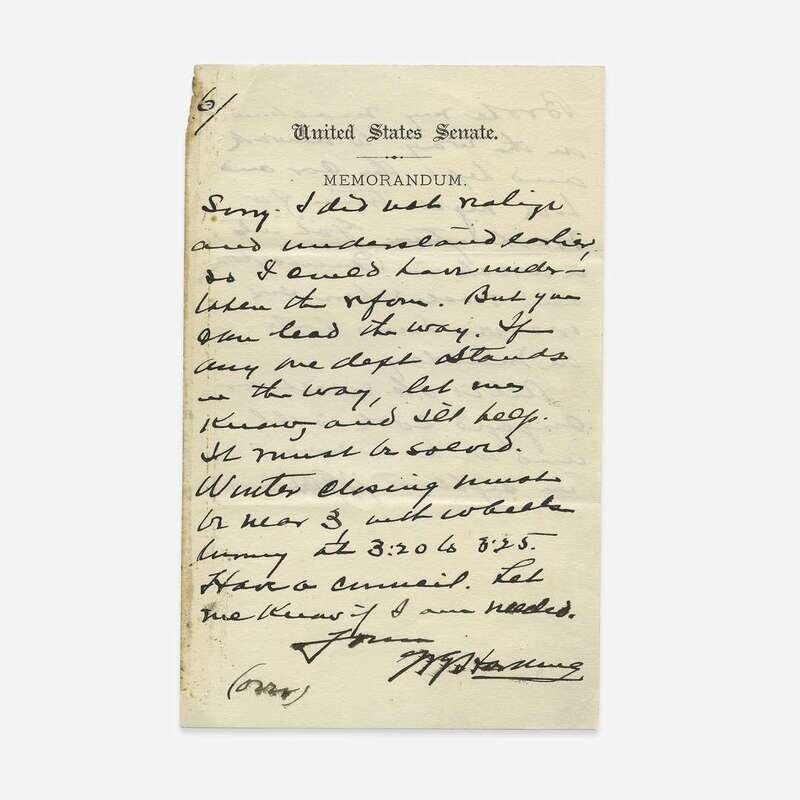 6/
United States Senate.
MEMORANDUM.
Sorry I did not realize
and understand earlier,
so I could have under-
taken the reform. But you
can lead the way. If
any one dept stands
in the way, let me
know, and I'll help.
It must be solved.
Winter closing must
be near 3, with wheels
at 3:20 to 3:25.
Have a council. Let
me know if I am needed.
Yours
WGHarding
(over)